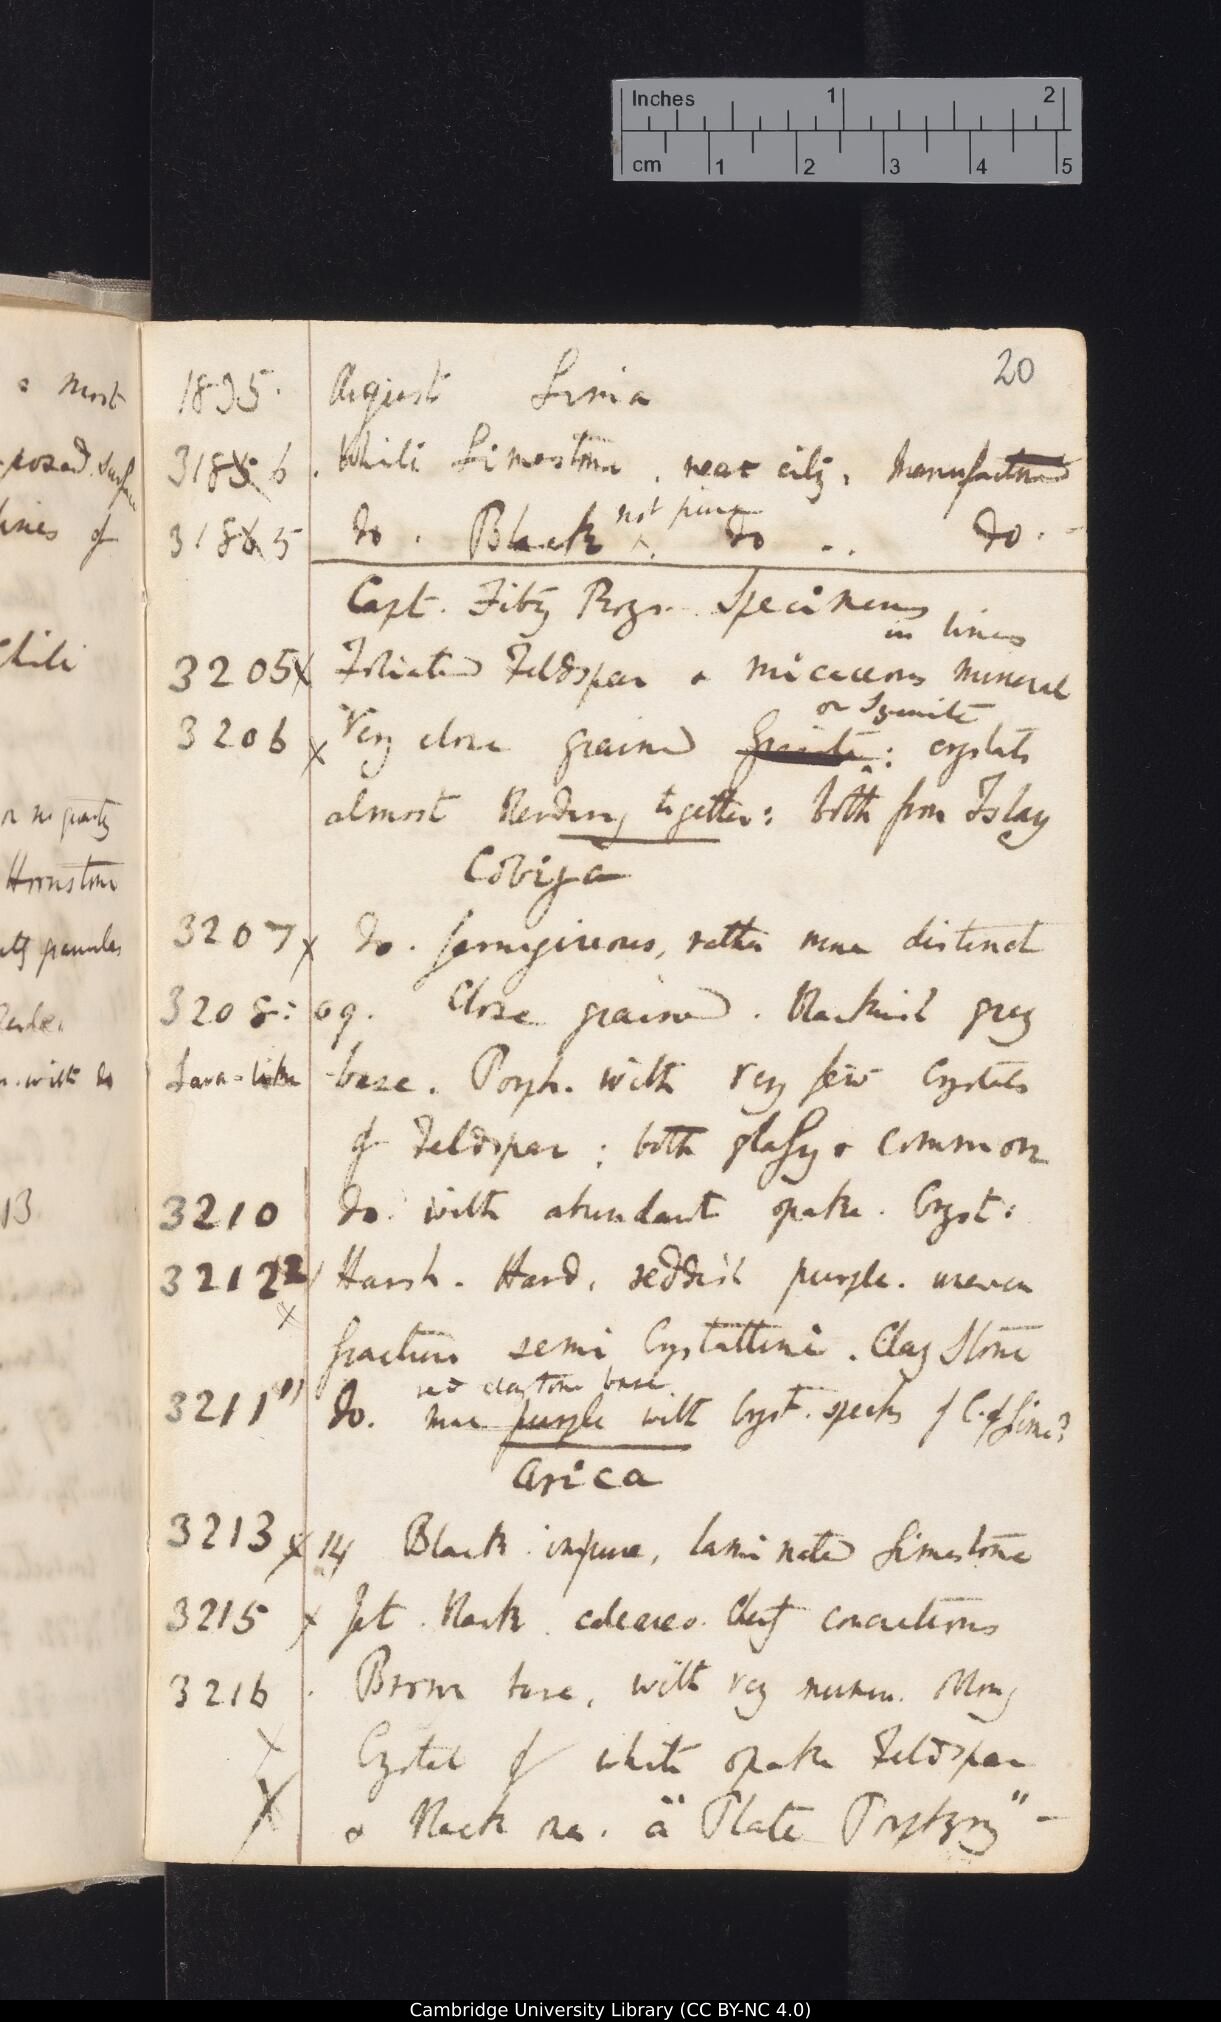 Inches 1 2
cm 1 2 3 4 5
20
1835. August Lima
31856 . White Limestone, near city, Manufactured
31865 do. Black not pure do .. do. -
Capt. Fitz Roys. Specimens
in lines
3205 x Foliated Feldspar & micaceous mineral
or Syenite
3206 x Very close grained Granite: crystals
almost blending together: both from Islay
Cobija
3207 x do. ferruginous, rather more distinct
3208: 09. Close grained. Blackish grey
Lava-like base. Porph. with very few Crystals
of Feldspar; both glassy & common
3210 do. with abundant opake. Cryst:
32122 x Harsh. Hard, reddish purple. uneven
fracture semi Crystalline. Clay Stone
red claystone base
3211 do. more purple with Cryst. specks of C. of Lime?
Arica
3213 x 14 Black impure, laminated Limestone
3215 x Jet Black calcareo. clay concretions
3216 . Brown base, with very numer.
x Crystal of white opake Feldspar
x & Black a "Plate Porphyry" -
& most
posed surface
lines of
Chili
or no partly
Hornstone
with granules
with do
13
Cambridge University Library (CC BY-NC 4.0)